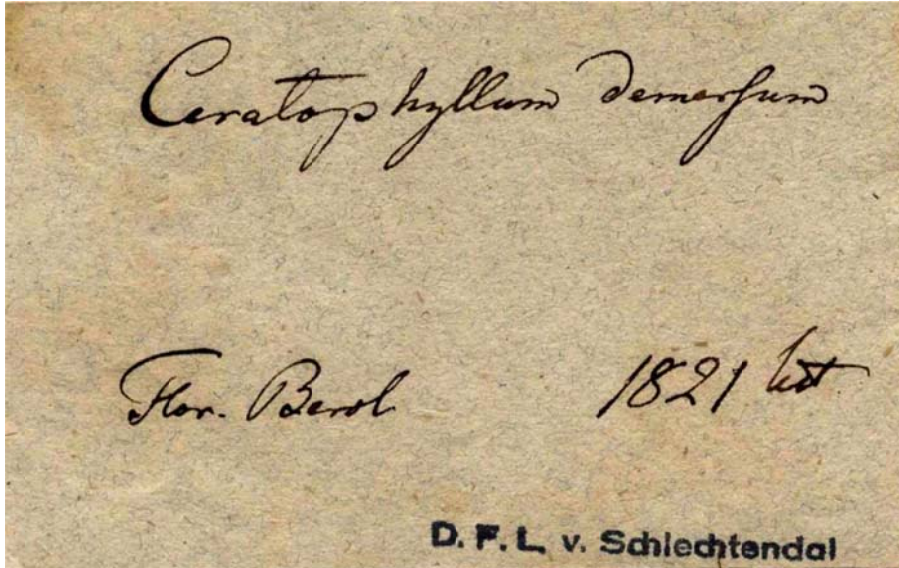 Ceratophyllum demersum
Flor. Berol 1821
D. F. L. v. Schlechtendal